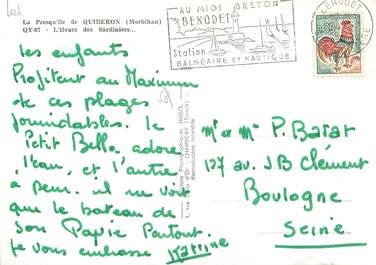 La Presqu'île de QUIBERON (Morbihan)
QY-67 - L'Heure des Sardiniers...
les enfants
Profitent au Maximum
de ces plages
formidables. le
Petit Bella adore
l'eau, et l'autre
a peur. il ne voit
que le bateau de
son Papie Partout.
je vous embrasse Karine
AU MIDI BRETON
BENODET
Station
BALNÉAIRE ET NAUTIQUE
BENODET
Mr et Mme P. Barat
127 av. JB Clément
Boulogne
Seine